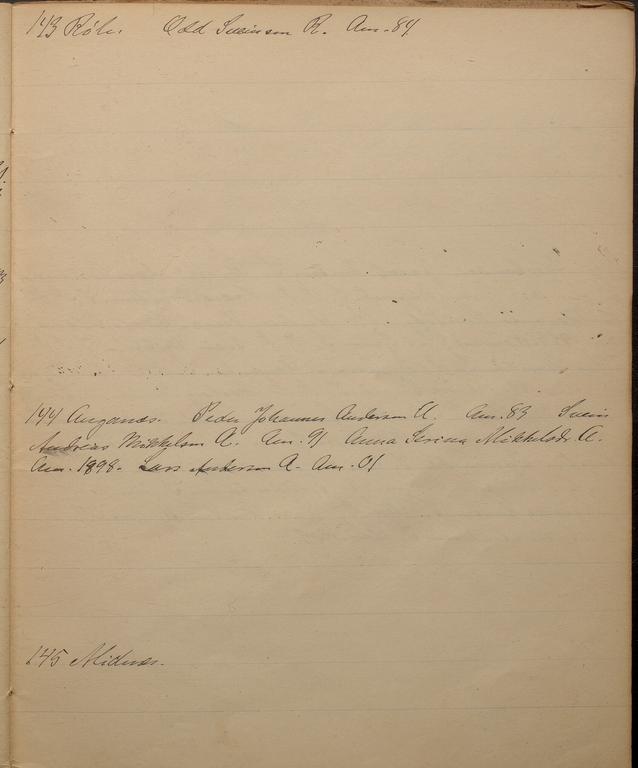 143 Röli. Odd Sveinson R. Am. 84
144 Auganæs. Peder Johannes Anderson A. Am. 83 Svein
Andreas Mikkelson A. Am. 91 Anna Serina Mikkelsdr. A.
Am. 1898. Lars Anderson A. Am. 01
145 Midnæs.